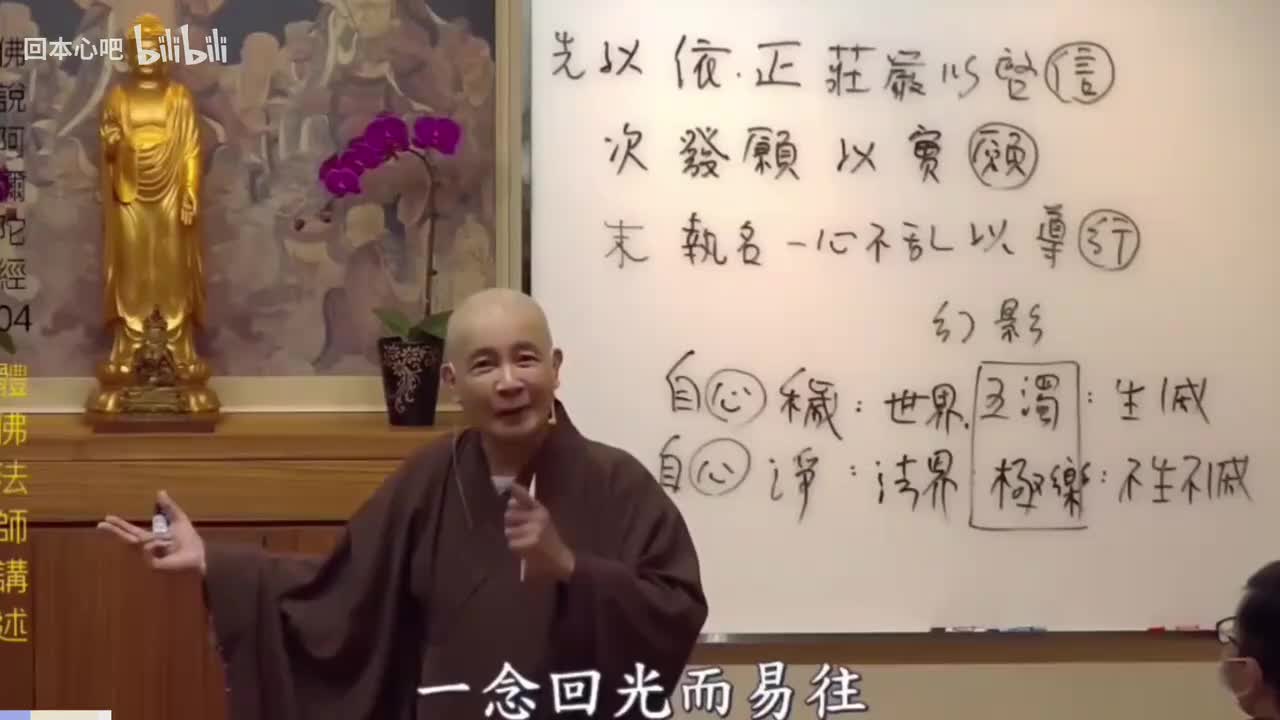 回本心吧 bilibili
佛說阿彌陀經04 體佛法師講述
先以依.正莊嚴以啓信
次發願以實願
末執名一心不乱以導行
幻影
自心穢:世界.五濁:生滅
自心淨:法界 極樂:不生不滅
一念回光而易往